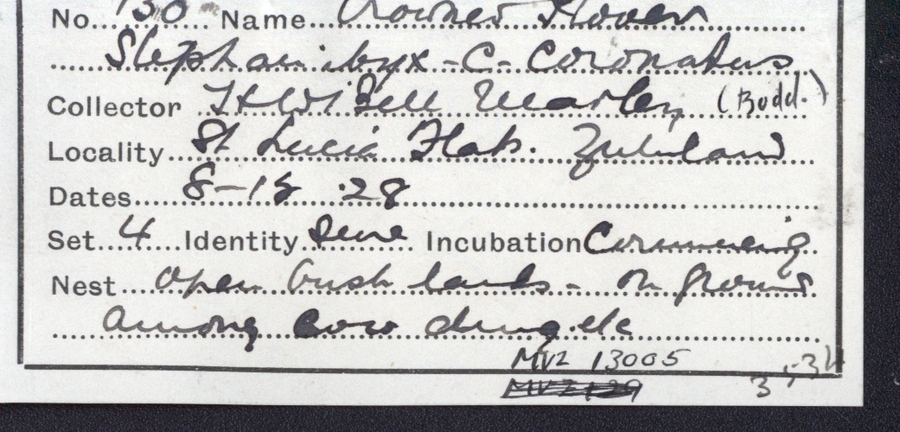 No. 130 Name Crowned Plover
Stephanibyx - C - Coronatus
Collector H W Bell Marley (Budd.)
Locality St Lucia Flats. Zululand
Dates 8-18 .28
Set 4 Identity Sure Incubation Commencing
Nest open bush lands - On ground
among cow dung etc
MVZ 13005